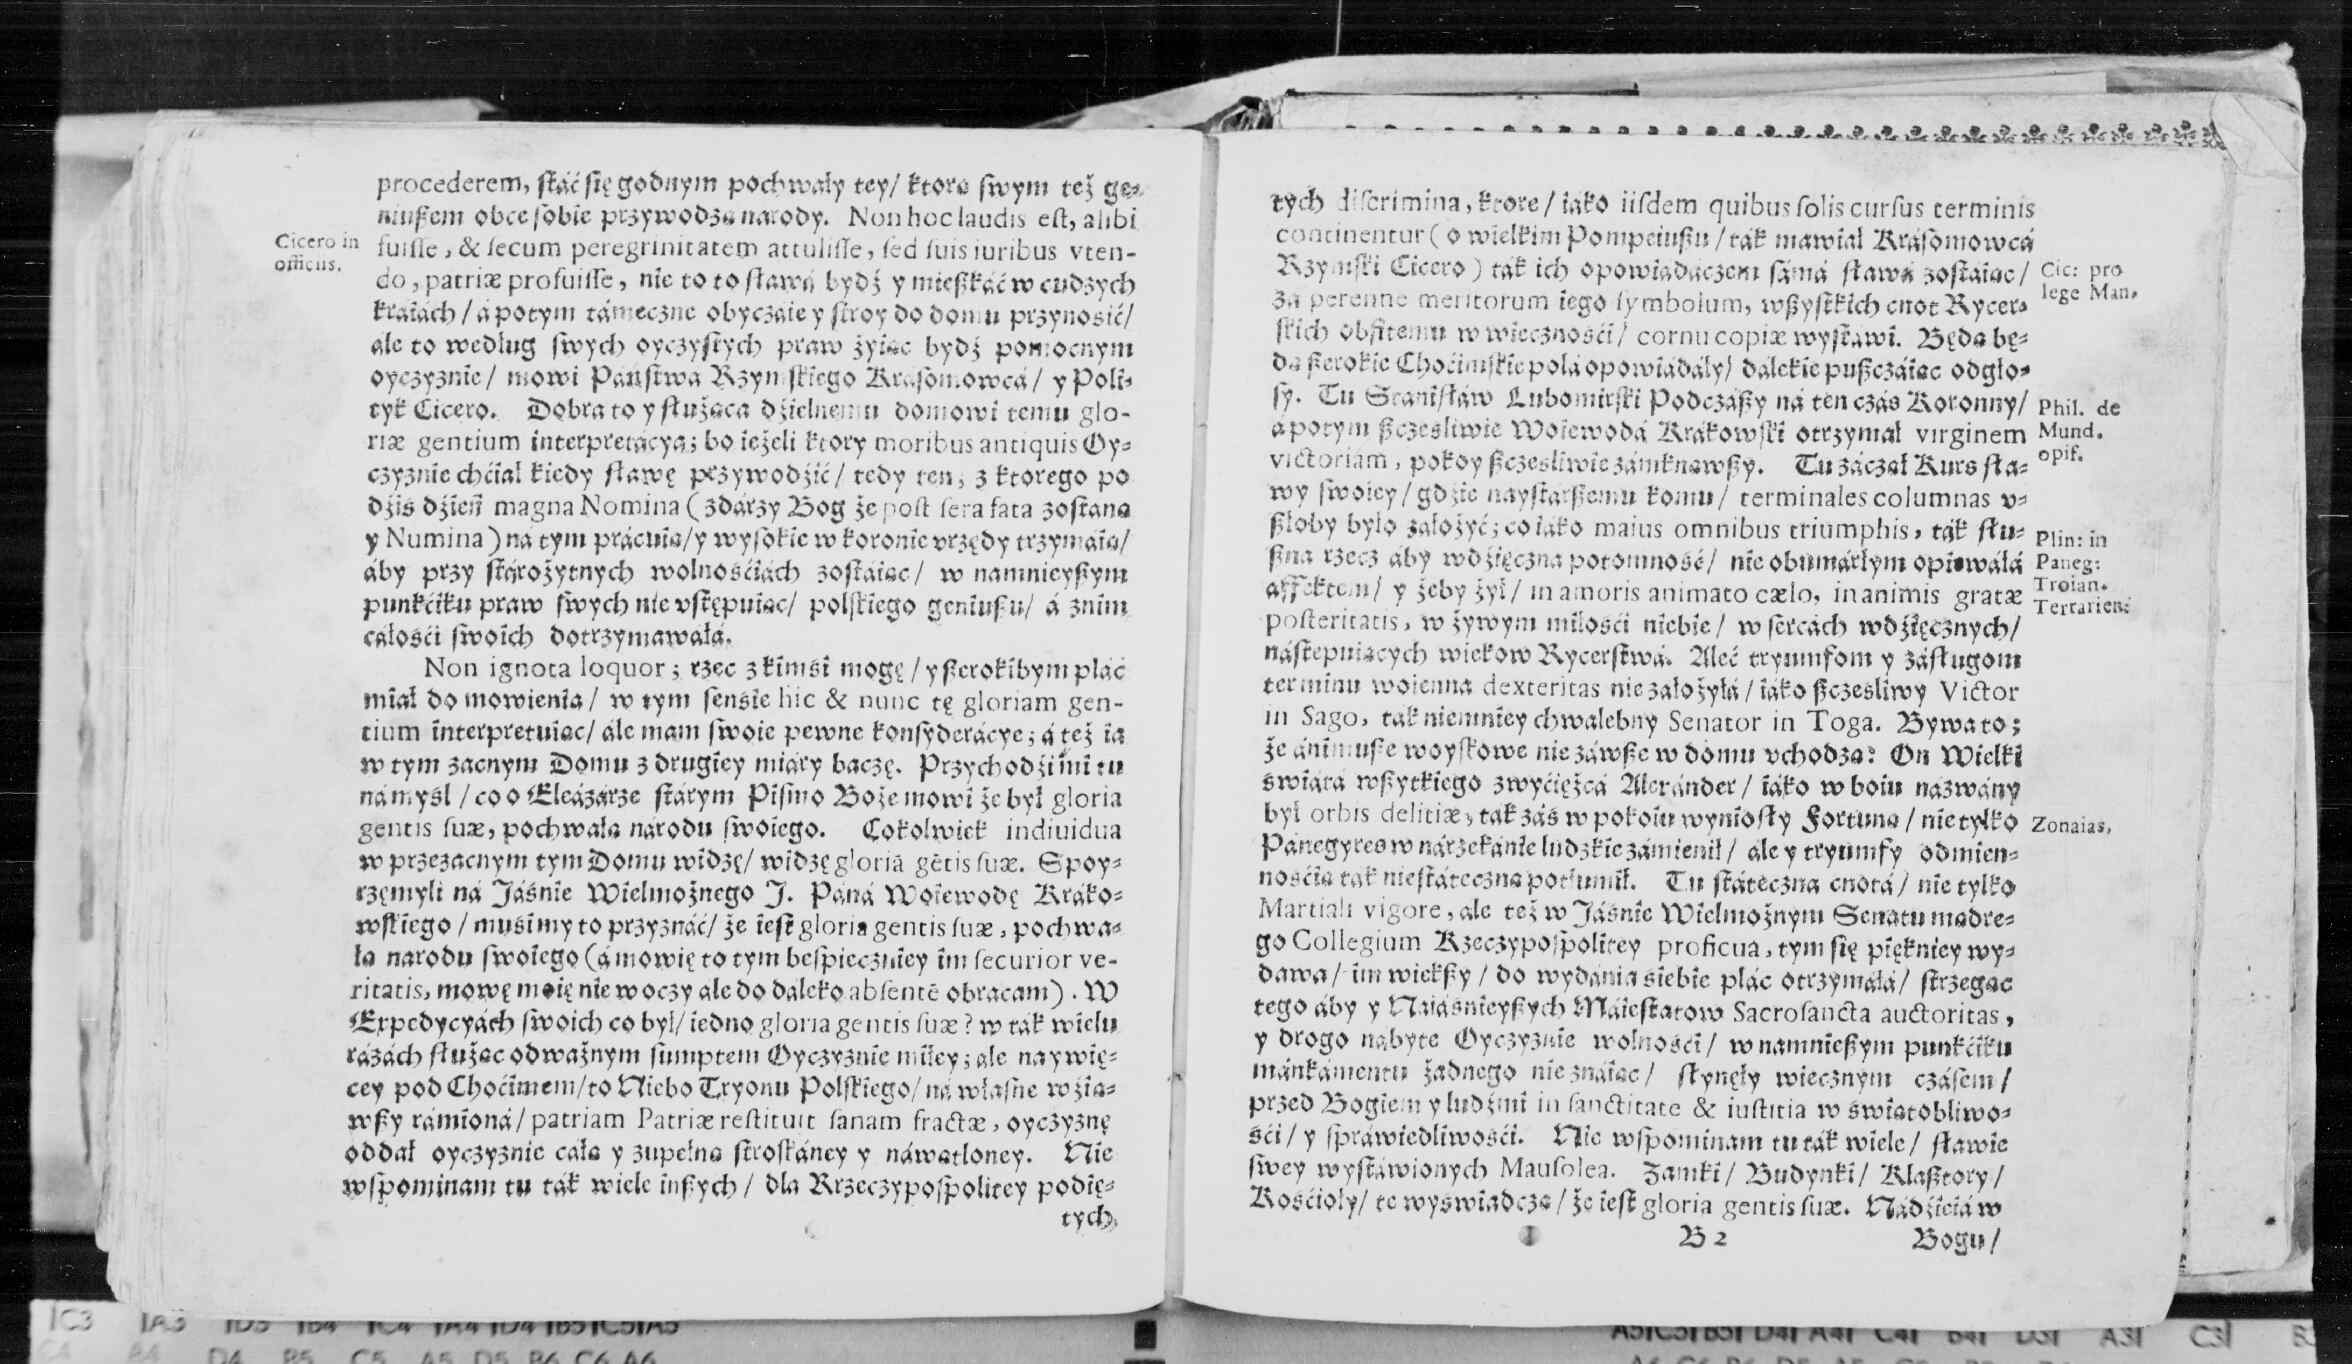 procederem, stáć się godnym pochwały tey/ ktorą swym też ge-
niuszem obce sobie przywodzą narody. Non hoc laudis est, alibi
Cicero in
officiis.
fuisse, & secum peregrinitatem attulisse, sed suis iuribus vten-
do, patriæ profuisse, nie to to sławá bydź y mieszkáć w cudzych
kráiách/ á potym támeczne obyczáie y stroy do domu przynosić/
ale to według swych oyczystych praw żyiąc bydź pomocnym
oyczyznie/ mowi Páństwá Rzymskiego Krásomowcá/ y Poli-
tyk Cicero. Dobra to y służąca dźielnemu domowi temu glo-
riæ gentium interpretácya; bo ieżeli ktory moribus antiquis Oy-
czyznie chćiał kiedy sławę przywodźić/ tedy ten, z ktorego po
dźiś dźień magna Nomina (zdárzy Bog że post sera fata zostáną
y Numina) ná tym prácuią/ y wysokie w koronie vrzędy trzymáią/
áby przy stárożytnych wolnośćiách zostáiąc/ w namnieyszym
punkćiku praw swych nie vstępuiąc/ polskiego geniuszu/ á znim
cáłośći swoich dotrzymawáłá.
Non ignota loquor; rzec z kimśi mogę/ y szerokibym plác
miał do mowienia/ w tym sensie hic & nunc tę gloriam gen-
tium interpretuiąc/ ále mam swoie pewne konsyderácye; á też ia
w tym zacnym Domu z drugiey miáry baczę. Przychodźi mi tu
ná myśl/ co o Eleázárze stárym Pismo Boże mowi że był gloria
gentis suæ, pochwałą narodu swoiego. Cokolwiek indiuidua
w przezacnym tym Domu widzę/ widzę gloriā gētis suæ. Spoy-
rzęmyli ná Jáśnie Wielmożnego J. Páná Woiewodę Kráko-
wskiego/ muśimy to przyznáć/ że iest gloria gentis suæ, pochwa-
łą narodu swoiego (á mowię to tym bespieczniey im securior ve-
ritatis, mowę moię nie w oczy ale do dáleko absentē obracam). W
Expedycyách swoich co był/ iedno gloria gentis suæ? w ták wielu
rázách służąc odważnym sumptem Oyczyznie miłey; ale naywię-
cey pod Choćimem/ to Niebo Tryonu Polskiego/ ná własne wźią-
wszy rámioná/ patriam Patriæ restituit sanam fractæ, oyczyznę
oddał oyczyznie całą y zupełną stroskáney y náwątloney. Nie
wspominam tu ták wiele inszych/ dla Rzeczypospolitey podię-
tych
tych discrimina, ktore/ iáko iisdem quibus solis cursus terminis
continentur (o wielkim Pompeiuszu/ ták mawiał Krásomowcá
Rzymski Cicero) ták ich opowiádáczem sámá sławá zostáiąc/
Cic: pro
lege Man.
zá perenne meritorum iego symbolum, wszystkich cnot Rycer-
skich obfitemu w wiecznośći/ cornucopiæ wystáwi. Będą bę-
dą szerokie Choćimskie polá opowiádáły/ dálekie puszczáiąc odgło-
sy. Tu Stanisław Lubomirski Podczászy ná ten czás Koronny/
Phil. de
Mund.
opif.
a potym szczesliwie Woiewodá Krákowski otrzymał virginem
victoriam, pokoy szczesliwie zámknąwszy. Tu záczął Kurs sła-
wy swoiey/ gdźie naystárszemu komu/ terminales columnas v-
szłoby było záłożyć; co iáko maius omnibus triumphis, ták słu-
Plin: in
Paneg:
Troian.
szna rzecz áby wdźięczna potomność/ nie obumárłym opiewáłá
affektem/ y żeby żył/ in amoris animato cælo, in animis gratæ
Tertarien:
posteritatis, w żywym miłośći niebie/ w sercách wdźięcznych/
nástępuiących wiekow Rycerstwá. Aleć tryumfom y zásługom
terminu woienna dexteritas nie záłożyłá/ iáko szczesliwy Victor
in Sago, tak niemniey chwalebny Senator in Toga. Bywa to;
że ánimusze woyskowe nie záwsze w domu vchodzą: On Wielki
świátá wszytkiego zwyćiężcá Alexánder/ iáko w boiu názwány
był orbis delitiæ, tak záś w pokoiu wyniosły Fortuną/ nie tylko
Zonaias,
Pánegyres w nárzekánie ludzkie zámienił/ ale y tryumfy odmien-
nośćią tak niestáteczną potłumił. Tu státeczna cnotá/ nie tylko
Martiali vigore, ale też w Jáśnie Wielmożnym Senatu mądre-
go Collegium Rzeczypospolitey proficua, tym się piękniey wy-
dawa/ im większy/ do wydánia śiebie plác otrzymáłá/ strzegąc
tego áby y Naiáśnieyszych Máiestatow Sacrosancta auctoritas,
y drogo nábyte Oyczyznie wolnośći/ w namnieszym punkćiku
mánkámentu żadnego nie znáiąc/ słynęły wiecznym czásem/
przed Bogiem y ludźmi in sanctitate & iustitia w świątobliwo-
śći/ y spráwiedliwośći. Nie wspominam tu ták wiele/ sławie
swey wystáwionych Mausolea. Zamki/ Budynki/ Klasztory/
Kośćioły/ te wyświadczą/ że iest gloria gentis suæ. Nádźieiá w
B 2
Bogu/